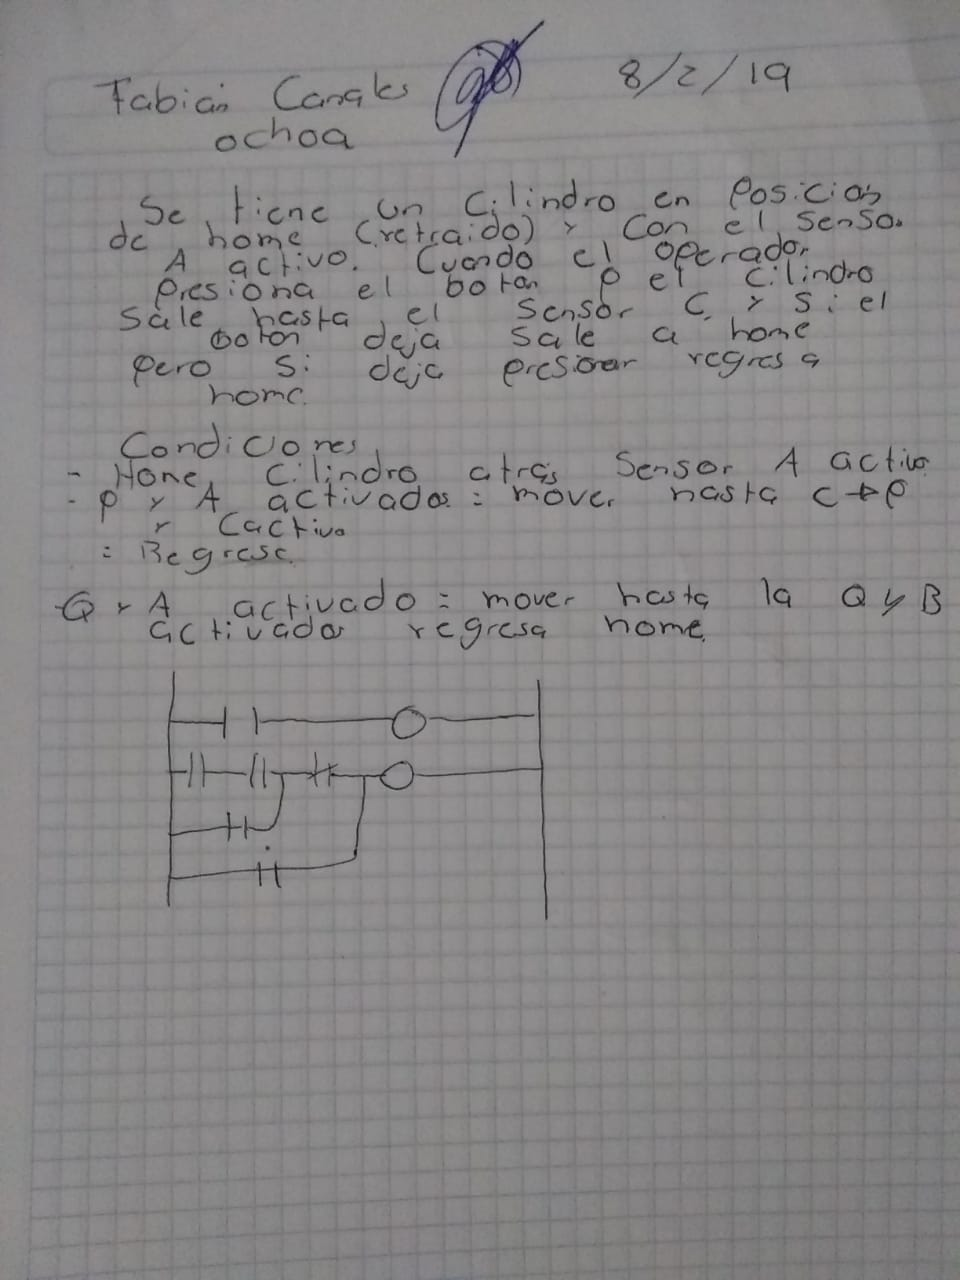 Fabian Canales
8/2/19
ochoa
Se tiene un Cilindro en Posicion
de home (retraido) y Con el Sensor
A activo. Cuando el operador
Presiona el boton P el cilindro
Sale hasta el Sensor C y Si el
boton deja Sale a home
Pero Si deja presionar regresa
home.
Condiciones
- Home Cilindro atras Sensor A activo
- P y A activados = mover hasta C P
y C activo
= Regrese
- Q y A activado = mover hasta la Q y B
activados regresa home.